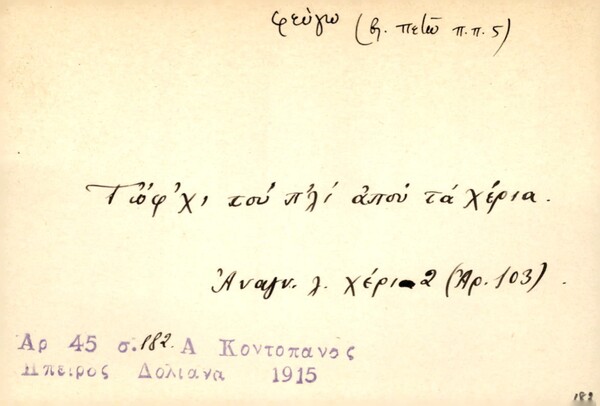 φεύγω (βλ. πετῶ π.π. 5)
Τιὄφ'χι τοὺ π'λὶ ἀποὺ τὰ χέρια.
Ἀναγν. λ. χέρι 2 (Ἀρ. 103).
Αρ 45 σ. 182. Α Κοντοπανος
Ηπειρος Δολιανα 1915
182